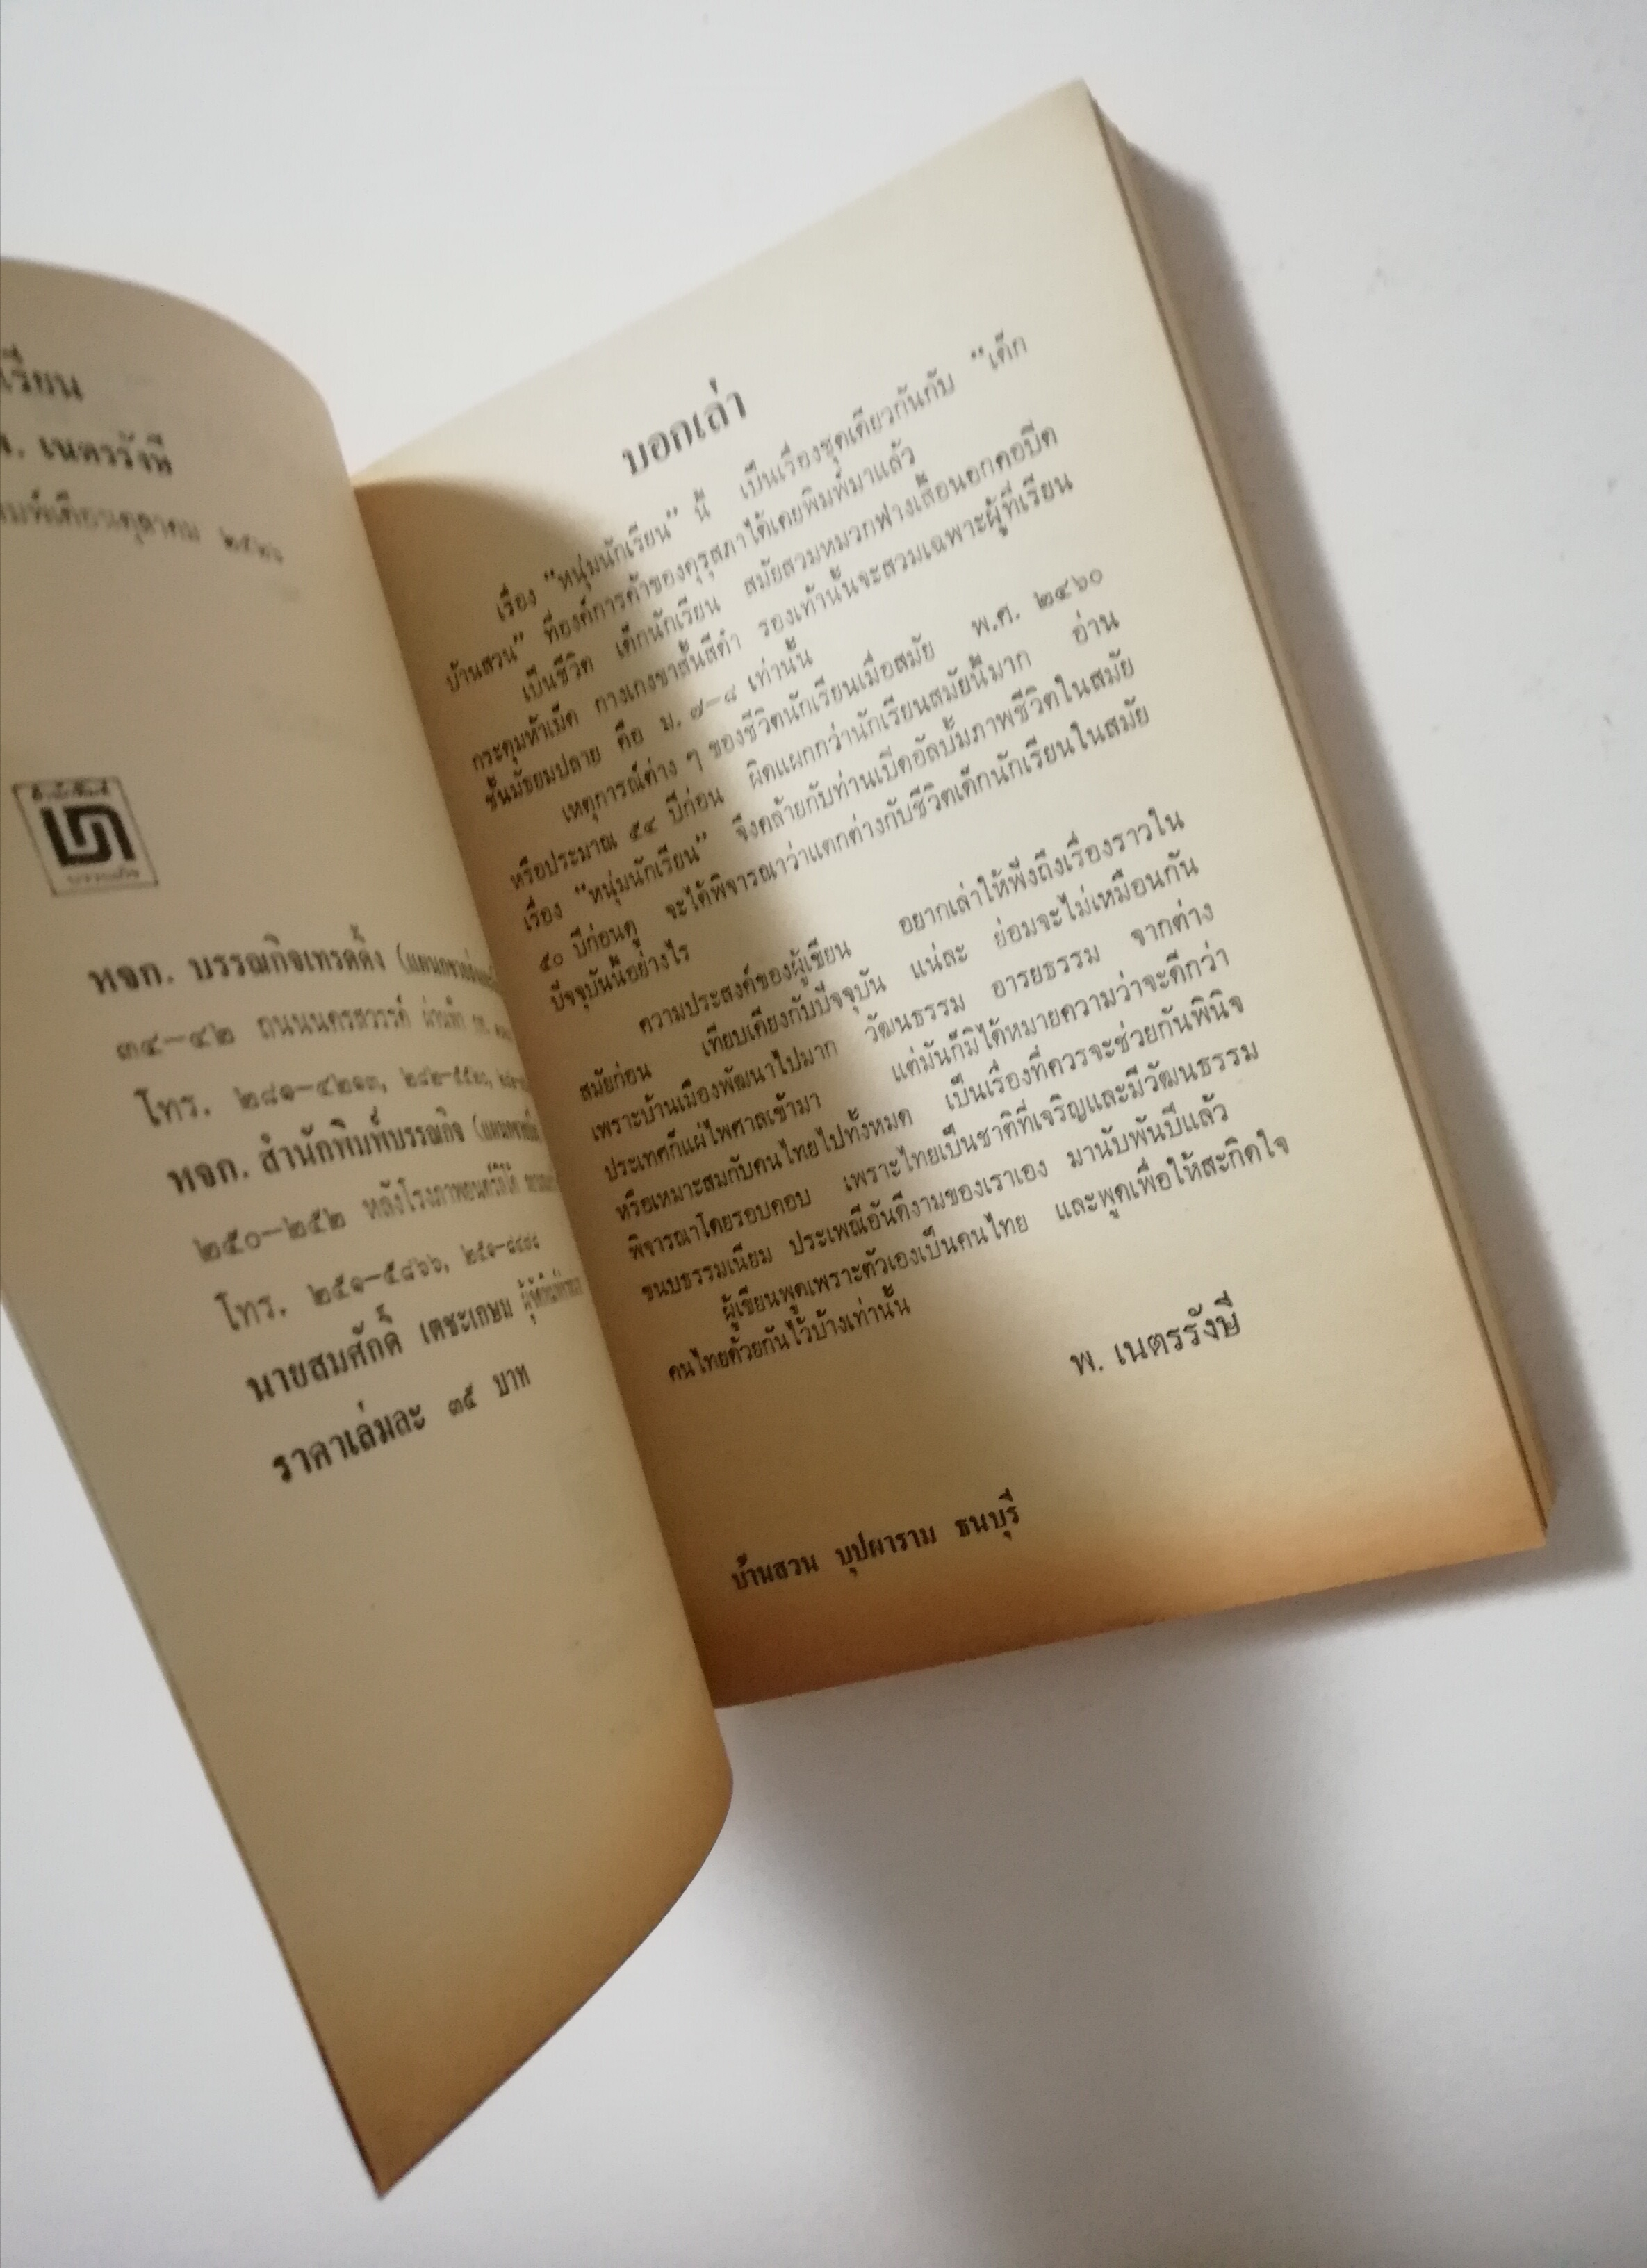 เรียน
พ. เนตรรังษี
พิมพ์เดือนตุลาคม ๒๕๒๖
สำนักพิมพ์
บรรณกิจ
หจก. บรรณกิจเทรดดิ้ง
๓๔—๔๒ ถนนนครสวรรค์ ผ่านฟ้า
โทร. ๒๘๑—๔๒๑๓,
หจก. สำนักพิมพ์บรรณกิจ
๒๕๐—๒๕๒ หลังโรงภาพยนตร์ลิโด้
โทร. ๒๕๑—๕๘๖๖,
นายสมศักดิ์ เตชะเกษม ผู้พิมพ์โฆษณา
ราคาเล่มละ ๓๕ บาท
บอกเล่า
เรื่อง “หนุ่มนักเรียน” นี้ เป็นเรื่องชุดเดียวกันกับ “เด็ก
บ้านสวน” ที่องค์การค้าของคุรุสภาได้เคยพิมพ์มาแล้ว
เป็นชีวิต เด็กนักเรียน สมัยสวมหมวกฟางเสื้อนอกคอปิด
กระดุมห้าเม็ด กางเกงขาสั้นสีดำ รองเท้านั้นจะสวมเฉพาะผู้ที่เรียน
ชั้นมัธยมปลาย คือ ม. ๗—๘ เท่านั้น
เหตุการณ์ต่าง ๆ ของชีวิตนักเรียนเมื่อสมัย พ.ศ. ๒๔๖๐
หรือประมาณ ๕๔ ปีก่อน ผิดแผกกว่านักเรียนสมัยนี้มาก อ่าน
เรื่อง “หนุ่มนักเรียน” จึงคล้ายกับท่านเปิดอัลบั้มภาพชีวิตในสมัย
๕๐ ปีก่อนดู จะได้พิจารณาว่าแตกต่างกับชีวิตเด็กนักเรียนในสมัย
ปัจจุบันนี้อย่างไร
ความประสงค์ของผู้เขียน อยากเล่าให้ฟังถึงเรื่องราวใน
สมัยก่อน เทียบเคียงกับปัจจุบัน แน่ละ ย่อมจะไม่เหมือนกัน
เพราะบ้านเมืองพัฒนาไปมาก วัฒนธรรม อารยธรรม จากต่าง
ประเทศก็แผ่ไพศาลเข้ามา แต่มันก็มิได้หมายความว่าจะดีกว่า
หรือเหมาะสมกับคนไทยไปทั้งหมด เป็นเรื่องที่ควรจะช่วยกันพินิจ
พิจารณาโดยรอบคอบ เพราะไทยเป็นชาติที่เจริญและมีวัฒนธรรม
ขนบธรรมเนียม ประเพณีอันดีงามของเราเอง มานับพันปีแล้ว
ผู้เขียนพูดเพราะตัวเองเป็นคนไทย และพูดเพื่อให้สะกิดใจ
คนไทยด้วยกันไว้บ้างเท่านั้น
พ. เนตรรังษี
บ้านสวน บุปผาราม ธนบุรี